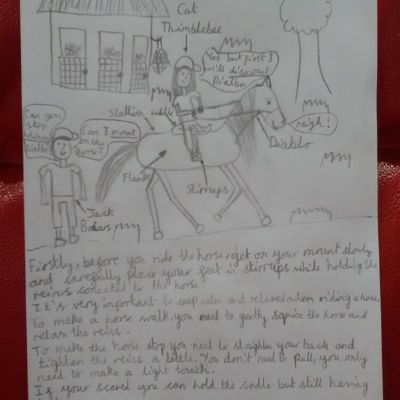 Cat
Thimblebee
Yes but first I
will dismount
Diablo
Stallion saddle
neigh!
Can you
stop
Diablo
Can I mount
on the
horse?
Diablo
Flank
Stirrups
Jack
Firstly, before you ride the horse, get on your mount slowly
and carefully place your feet in stirrups while holding the
reins conected to the horse.
It's very important to keep calm and relaxed when riding a horse.
To make a horse walk, you need to gently squice the horse and
relax the reirs.
To make the horse stop you need to straighten your back and
tighten the reins a little. You don't need to pull, you only
need to make a light touch.
If your scared you can hold the sadle but still having